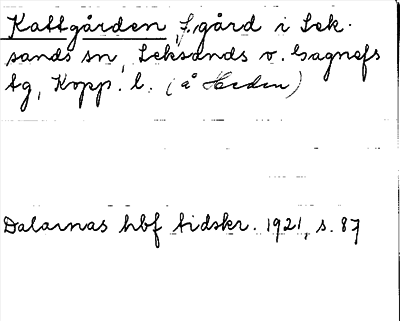 Kattgården, f. gård i Lek-
sands sn, Leksands o. Gagnefs
tg, Kopp. l. (å Heden)
Dalarnas hbf tidskr. 1921, s. 87